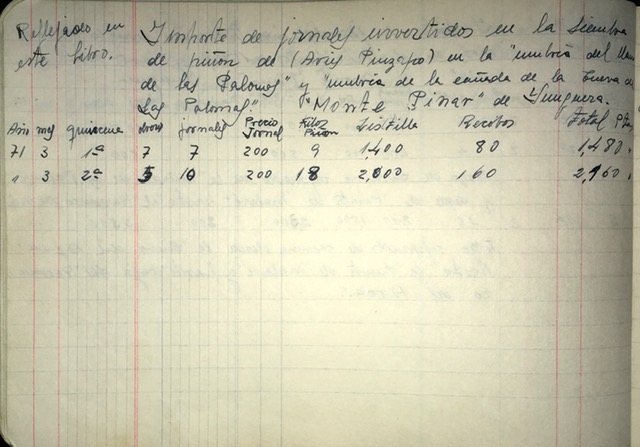 Reflejado en
este Libro.
Importe de jornales invertidos en la Siembra
de piñon de (Avies Pinzapo) en la "umbria del
de las Palomas" y "umbria de la cañada de la Cueva de
Las Palomas" "Monte Pinar" de Yunquera.
Año mes quincena obreros jornales Precio Jornal Kilos Piñon Listilla Recibos Total Ptas
71 3 1ª 7 7 200 9 1,400 80 1,480.
" 3 2ª 5 10 200 18 2,000 160 2,160.